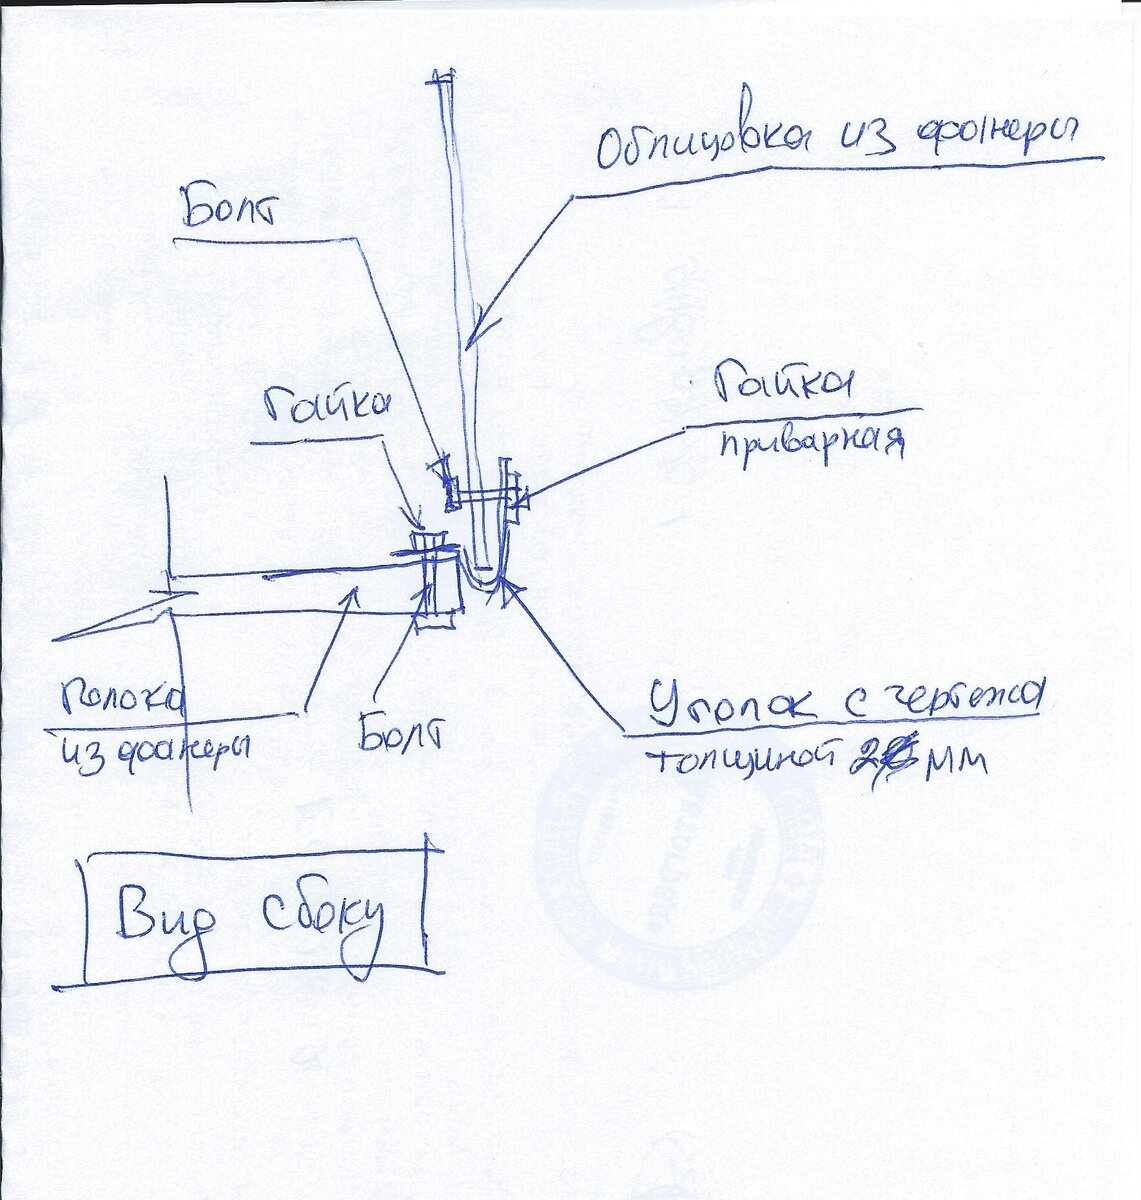 Облицовка из фанеры
Болт
Гайка
Гайка
приварная
Полока
из фанеры
Болт
Уголок с чертежа
толщиной 2 мм
Вид сбоку